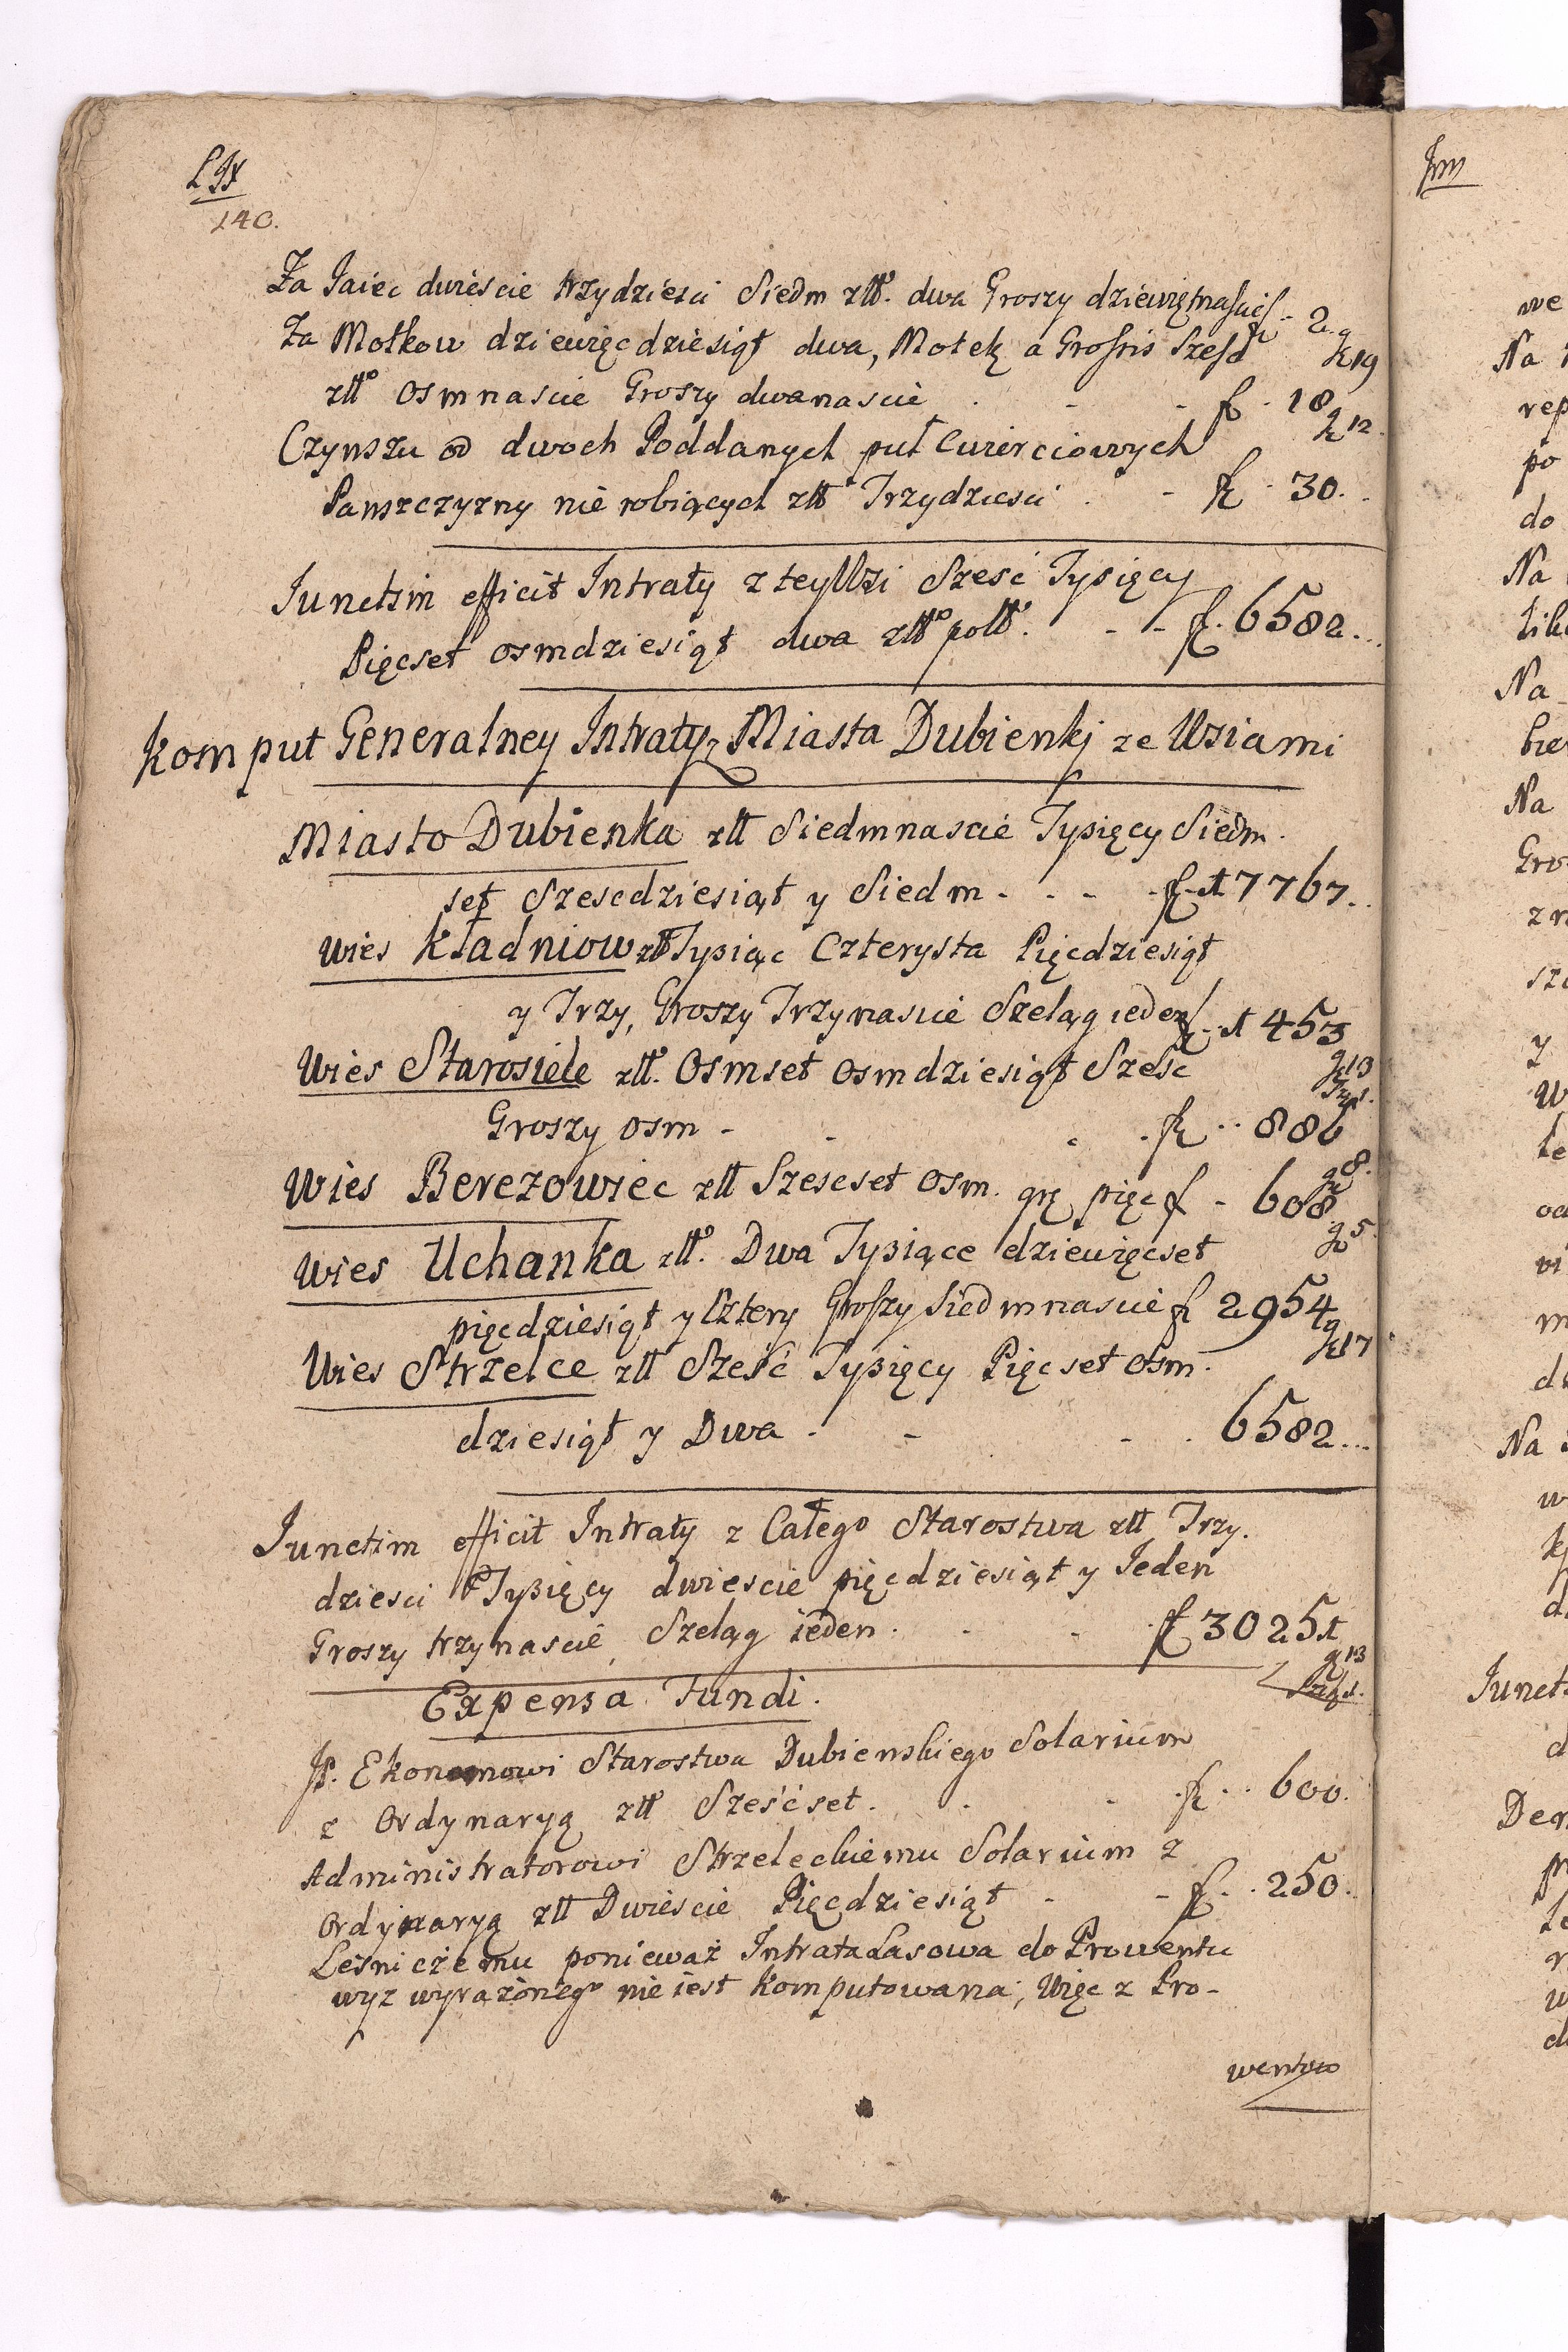 140.
Za Jaiec dwiescie trzydziesci Siedm złł. dwa Groszy dziewiętnascie f - 2 g 19
Za Motkow dziewięcdziesiąt dwa, Motek a Grossis Szesc
złło osmnascie Groszy dwanascie . - - f. 18 g 12.
Czynszu od dwoch Poddanych puł Cwierciowych
Panszczyzny nie robiących złło Trzydziesci . - f. 30.
Junctim efficit Intraty z tey Wsi Szesc Tysięcy
Pięcset osmdziesiąt dwa złło polło. - - f. 6582..
Komput Generalney Intraty z Miasta Dubienki ze Wsiami
Miasto Dubienka złł Siedmnascie Tysięcy Siedm.
set Szescdziesiąt y Siedm - - - f. 17767..
Wies Kładniow złł Tysiąc Czterysta Pięcdziesiąt
y Trzy, Groszy Trzynascie Szeląg ieden f. 1453 g 13 Szą 1.
Wies Starosiele złło. Osmset osmdziesiąt Szesc
Groszy osm - - . f. .. 886 g 8.
Wies Berezowiec złł Szescset osm. gr pięc f - 608 g 5.
Wies Uchanka złło. Dwa Tysiące dziewięcset
pięcdziesiąt y Cztery Groszy Siedmnascie f 2954 g 17
Wies Strzelce złł Szesć Tysięcy Pięcset osm.
dziesiąt y Dwa . - - . 6582...
Junctim efficit Intraty z Całego Starostwa złł Trzy.
dziesci Tysięcy dwiescie pięcdziesiąt y Jeden
Groszy trzynascie, Szeląg ieden . . - . f 30251 g 13 Szą 1.
Expensa Fundi.
JP. Ekonomowi Starostwa Dubienskiego Solarium
z Ordynaryą złło Szesćset . . - f. .. 600.
Administratorowi Strzeleckiemu Solarium z
Ordynaryą złł Dwiescie Pięcdziesiąt - - f. . 250..
Leśniczemu ponieważ Intrata Lasowa do Prowentu
wyz wyrażonego nie iest komputowana, Więc z Pro-
wentu
we
Na
rep
po
do
Na
Na
Na
Gro
z n
y
W
te
m
Na
w
Junct
d